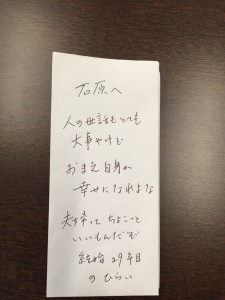 石原へ
人の世話もとても
大事やけど
おまえ自身が
幸せになれよな
夫婦って ちょこっと
いいもんだぞ
結婚29年目
のひらい